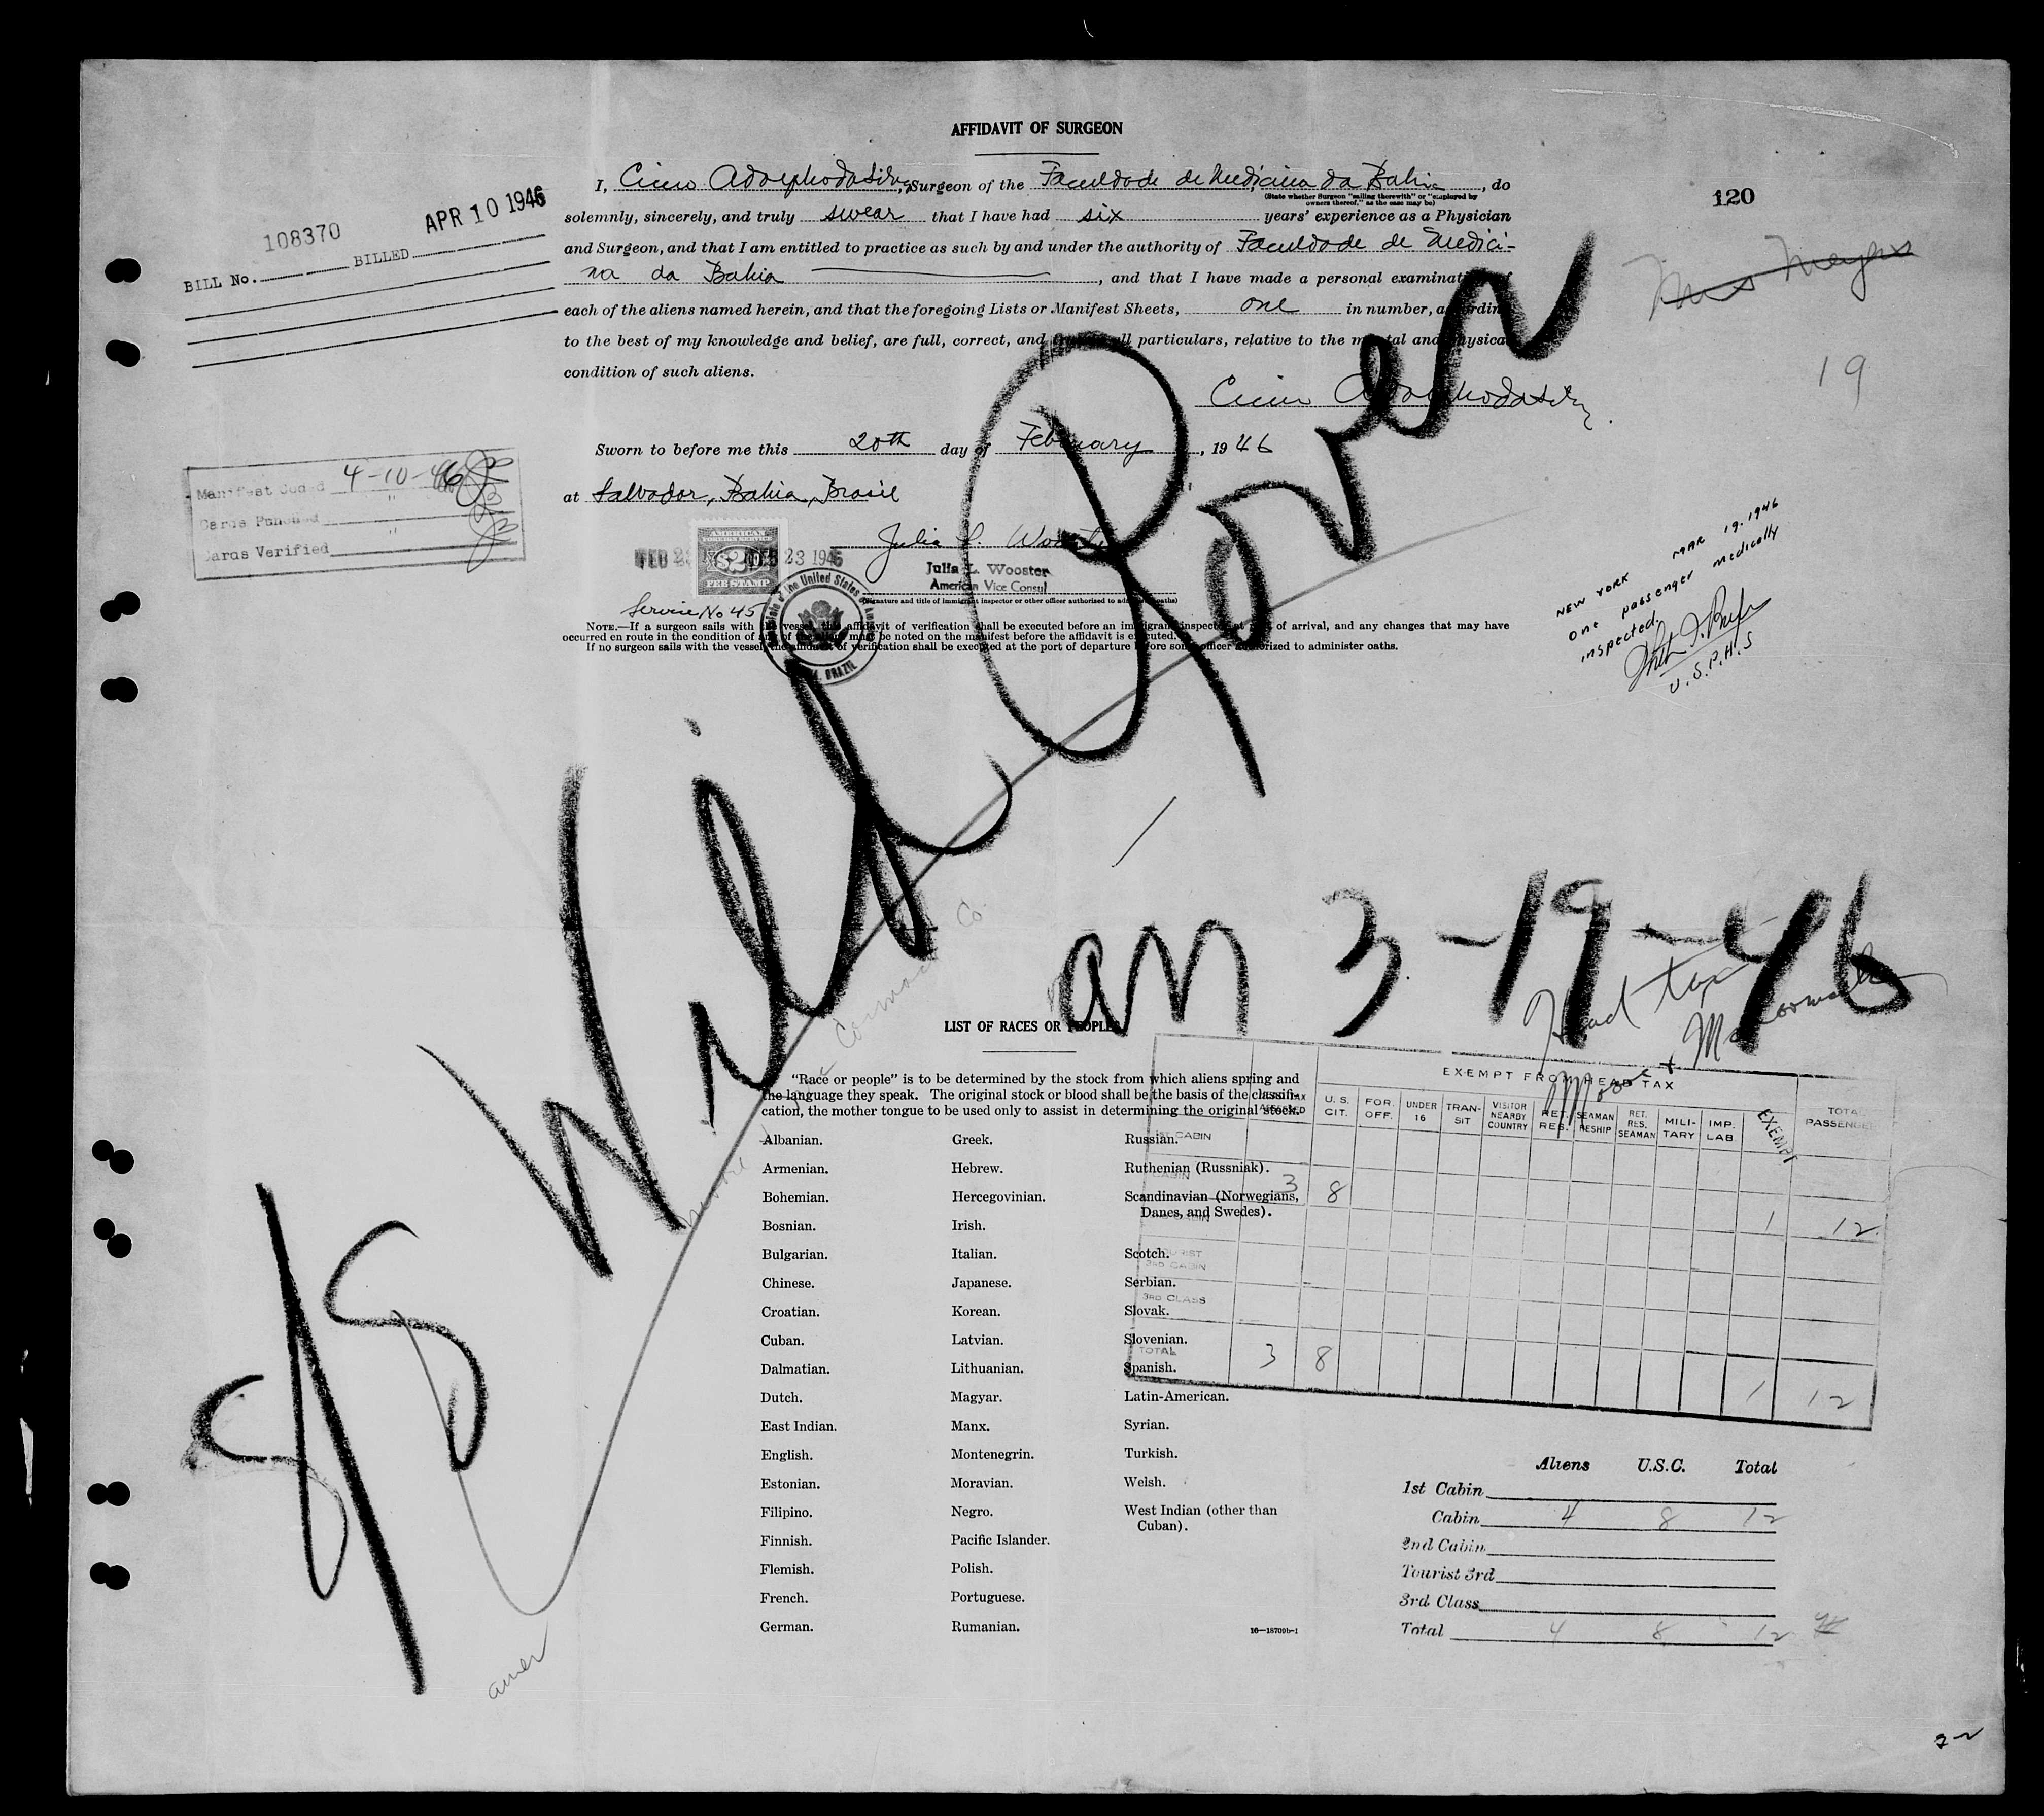 AFFIDAVIT OF SURGEON
120
I, Cicero Adolpho da Silva, Surgeon of the Faculdade de Medicina da Bahia, do
(State whether Surgeon "sailing therewith" or "employed by
owners thereof," as the case may be)
solemnly, sincerely, and truly swear that I have had six years' experience as a Physician
and Surgeon, and that I am entitled to practice as such by and under the authority of Faculdade de Medici-
na da Bahia, and that I have made a personal examination of
each of the aliens named herein, and that the foregoing Lists or Manifest Sheets, one in number, according
to the best of my knowledge and belief, are full, correct, and true in all particulars, relative to the mental and physical
condition of such aliens.
Cicero Adolpho da Silva
Sworn to before me this 20th day of February, 1946
at Salvador, Bahia, Brasil
Julia L. Wooster
Julia L. Wooster
American Vice Consul
(Signature and title of immigrant inspector or other officer authorized to administer oaths)
108370 APR 10 1946
BILL No. BILLED
Manifest Coded 4-10-46
Cards Punched "
Cards Verified "
FEB 23 1946
AMERICAN
FOREIGN SERVICE
$2
FEE STAMP
Service No 45
BRAZIL
NOTE.—If a surgeon sails with the vessel, this affidavit of verification shall be executed before an immigrant inspector at port of arrival, and any changes that may have
occurred en route in the condition of any of the aliens must be noted on the manifest before the affidavit is executed.
If no surgeon sails with the vessel, the affidavit of verification shall be executed at the port of departure before some officer authorized to administer oaths.
Mrs Meyers
19
NEW YORK MAR 19-1946
One passenger medically
inspected.
U.S.P.H.S
S/S Wild Rover
arr 3-19-46
Head tax
Moore + McCormack
LIST OF RACES OR PEOPLES
"Race or people" is to be determined by the stock from which aliens spring and
the language they speak. The original stock or blood shall be the basis of the classifi-
cation, the mother tongue to be used only to assist in determining the original stock.
Albanian.
Armenian.
Bohemian.
Bosnian.
Bulgarian.
Chinese.
Croatian.
Cuban.
Dalmatian.
Dutch.
East Indian.
English.
Estonian.
Filipino.
Finnish.
Flemish.
French.
German.
Greek.
Hebrew.
Hercegovinian.
Irish.
Italian.
Japanese.
Korean.
Latvian.
Lithuanian.
Magyar.
Manx.
Montenegrin.
Moravian.
Negro.
Pacific Islander.
Polish.
Portuguese.
Rumanian.
Russian.
Ruthenian (Russniak).
Scandinavian (Norwegians,
Danes, and Swedes).
Scotch.
Serbian.
Slovak.
Slovenian.
Spanish.
Latin-American.
Syrian.
Turkish.
Welsh.
West Indian (other than
Cuban).
16—18709b-1
EXEMPT FROM HEAD TAX
U.S. CIT. FOR. OFF. UNDER 16 TRAN-SIT VISITOR NEARBY COUNTRY RET. RES. SEAMAN RESHIP RET. RES. SEAMAN MILI-TARY IMP. LAB. EXEMPT TOTAL PASSENGE
1ST CABIN
CABIN 3 8 1 12
3RD CABIN
3RD CLASS
TOTAL 3 8 1 12
Aliens U.S.C. Total
1st Cabin
Cabin 4 8 12
2nd Cabin
Tourist 3rd
3rd Class
Total 4 8 12
amer